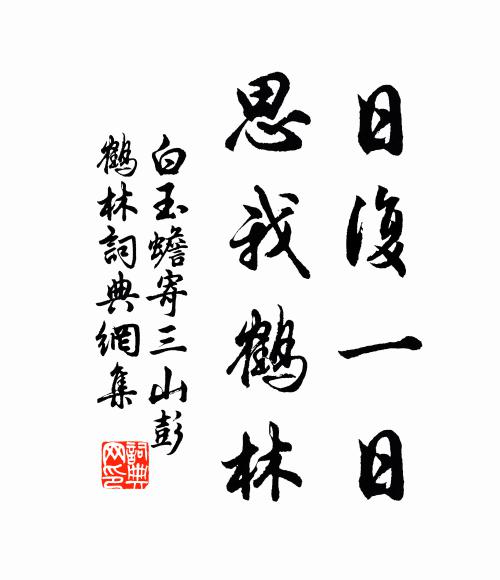 日復一日
思我鶴林
白玉蟾寄三山彭
鶴林詞典網集
詞典
网印